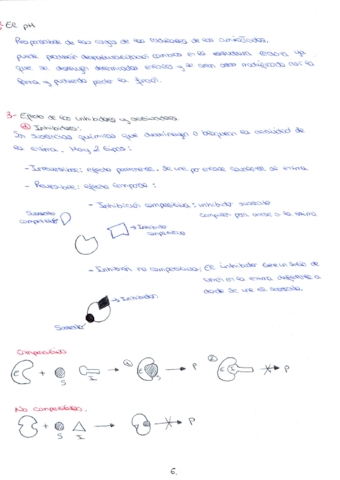 2- El pH
Responsable de la carga de los radicales de los aminoácidos,
puede producir desnaturalización cambios en la estructura ya
que se destruyen determinados enlaces y se crean otros modificando así la
forma y pudiendo perder la función.
3- Efecto de los inhibidores y activadores.
a) Inhibidores:
Son sustancias químicas que disminuyen o bloquean la actividad de
la enzima. Hay 2 tipos:
- Irreversible: efecto permanente. Se une por enlace covalente al enzima.
- Reversible: efecto temporal:
- Inhibición competitiva: inhibidor sustrato
compiten para unirse a la enzima
Sustrato
Inhibidor
competitivo
- Inhibición no competitiva: El inhibidor tiene un sitio de
unión en la enzima diferente a
donde se une el sustrato.
Inhibidor
Sustrato
Competitivo
E + S I 1 P 2 E I P
No competitivo.
+ S I P
6.